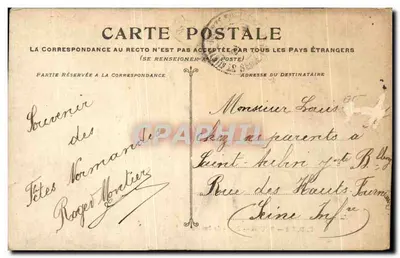 CARTE POSTALE
LA CORRESPONDANCE AU RECTO N'EST PAS ACCEPTÉE PAR TOUS LES PAYS ÉTRANGERS
(SE RENSEIGNER A LA POSTE)
PARTIE RÉSERVÉE A LA CORRESPONDANCE
ADRESSE DU DESTINATAIRE
Souvenir
des
Fêtes Normandes
Roger Montier
Monsieur Louis
chez ses parents à
Saint-Aubin jte B
Rue des Hauts
Seine Infre
CPAPHIL